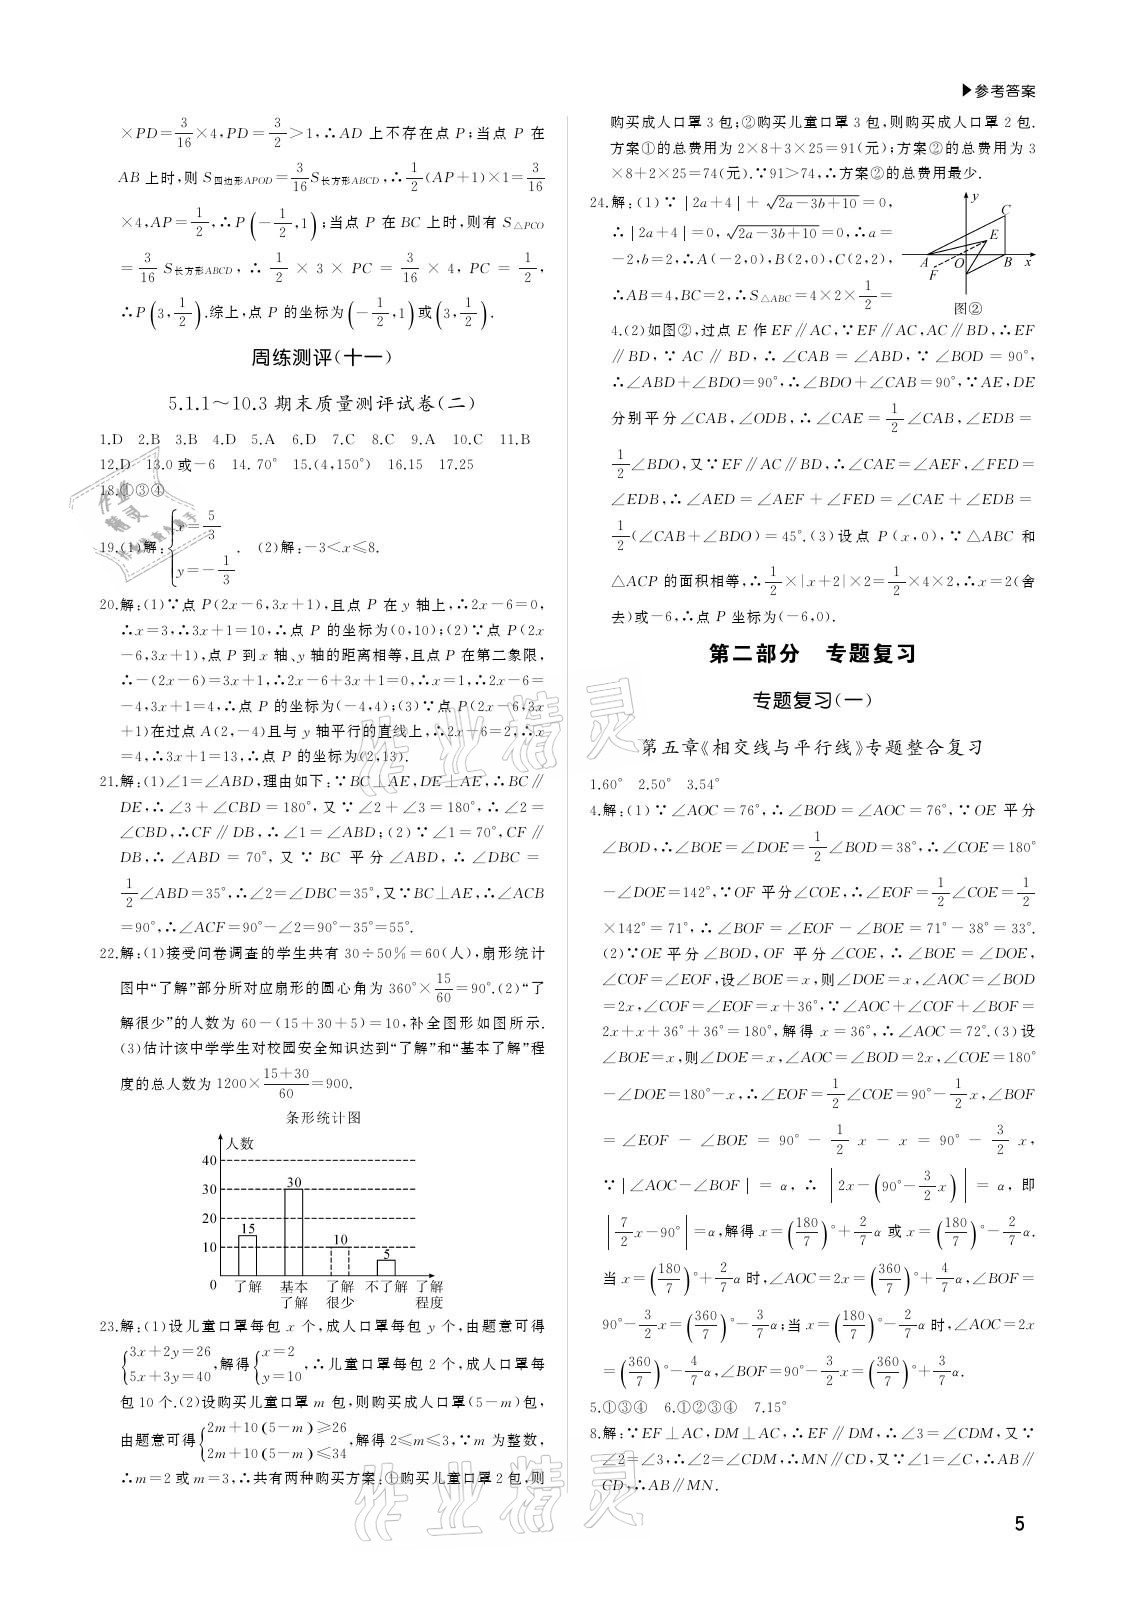 ▶参考答案
×PD=3/16×4,PD=3/2>1,∴AD 上不存在点 P;当点 P 在
AB 上时,则 S四边形APOD=3/16S长方形ABCD,∴1/2(AP+1)×1=3/16
×4,AP=1/2,∴P(-1/2,1);当点 P 在 BC 上时,则有 S△PCO
=3/16 S长方形ABCD,∴1/2×3×PC=3/16×4,PC=1/2,
∴P(3,1/2).综上,点 P 的坐标为(-1/2,1)或(3,1/2).
周练测评(十一)
5.1.1～10.3 期末质量测评试卷(二)
1.D 2.B 3.B 4.D 5.A 6.D 7.C 8.C 9.A 10.C 11.B
12.D 13.0 或-6 14.70° 15.(4,150°) 16.15 17.25
18.①③④
19.(1)解:{x=5/3 y=-1/3. (2)解:-3<x≤8.
20.解:(1)∵点 P(2x-6,3x+1),且点 P 在 y 轴上,∴2x-6=0,
∴x=3,∴3x+1=10,∴点 P 的坐标为(0,10);(2)∵点 P(2x
-6,3x+1),点 P 到 x 轴、y 轴的距离相等,且点 P 在第二象限,
∴-(2x-6)=3x+1,∴2x-6+3x+1=0,∴x=1,∴2x-6=
-4,3x+1=4,∴点 P 的坐标为(-4,4);(3)∵点 P(2x-6,3x
+1)在过点 A(2,-4)且与 y 轴平行的直线上,∴2x-6=2,∴x
=4,∴3x+1=13,∴点 P 的坐标为(2,13).
21.解:(1)∠1=∠ABD,理由如下:∵BC⊥AE,DE⊥AE,∴BC∥
DE,∴∠3+∠CBD=180°,又∵∠2+∠3=180°,∴∠2=
∠CBD,∴CF∥DB,∴∠1=∠ABD;(2)∵∠1=70°,CF∥
DB,∴∠ABD=70°,又∵BC 平分∠ABD,∴∠DBC=
1/2∠ABD=35°,∴∠2=∠DBC=35°,又∵BC⊥AE,∴∠ACB
=90°,∴∠ACF=90°-∠2=90°-35°=55°.
22.解:(1)接受问卷调查的学生共有 30÷50%=60(人),扇形统计
图中“了解”部分所对应扇形的圆心角为 360°×15/60=90°.(2)“了
解很少”的人数为 60-(15+30+5)=10,补全图形如图所示.
(3)估计该中学学生对校园安全知识达到“了解”和“基本了解”程
度的总人数为 1200×(15+30)/60=900.
条形统计图
人数
40
30
20
10
0
15
30
10
5
了解 基本了解 了解很少 不了解 了解程度
23.解:(1)设儿童口罩每包 x 个,成人口罩每包 y 个,由题意可得
{3x+2y=26 5x+3y=40,解得{x=2 y=10,∴儿童口罩每包 2 个,成人口罩每
包 10 个.(2)设购买儿童口罩 m 包,则购买成人口罩(5-m)包,
由题意可得{2m+10(5-m)≥26 2m+10(5-m)≤34,解得 2≤m≤3,∵m 为整数,
∴m=2 或 m=3,∴共有两种购买方案:①购买儿童口罩 2 包,则
购买成人口罩 3 包;②购买儿童口罩 3 包,则购买成人口罩 2 包.
方案①的总费用为 2×8+3×25=91(元);方案②的总费用为 3
×8+2×25=74(元).∵91>74,∴方案②的总费用最少.
24.解:(1)∵|2a+4|+√(2a-3b+10)=0,
∴|2a+4|=0,√(2a-3b+10)=0,∴a=
-2,b=2,∴A(-2,0),B(2,0),C(2,2),
∴AB=4,BC=2,∴S△ABC=4×2×1/2=
y
C
E
A
O
B
x
F
图②
4.(2)如图②,过点 E 作 EF∥AC,∵EF∥AC,AC∥BD,∴EF
∥BD,∵AC∥BD,∴∠CAB=∠ABD,∵∠BOD=90°,
∴∠ABD+∠BDO=90°,∴∠BDO+∠CAB=90°,∵AE,DE
分别平分∠CAB,∠ODB,∴∠CAE=1/2∠CAB,∠EDB=
1/2∠BDO,又∵EF∥AC∥BD,∴∠CAE=∠AEF,∠FED=
∠EDB,∴∠AED=∠AEF+∠FED=∠CAE+∠EDB=
1/2(∠CAB+∠BDO)=45°.(3)设点 P(x,0),∵△ABC 和
△ACP 的面积相等,∴1/2×|x+2|×2=1/2×4×2,∴x=2(舍
去)或-6,∴点 P 坐标为(-6,0).
第二部分 专题复习
专题复习(一)
第五章《相交线与平行线》专题整合复习
1.60° 2.50° 3.54°
4.解:(1)∵∠AOC=76°,∴∠BOD=∠AOC=76°,∵OE 平分
∠BOD,∴∠BOE=∠DOE=1/2∠BOD=38°,∴∠COE=180°
-∠DOE=142°,∵OF 平分∠COE,∴∠EOF=1/2∠COE=1/2
×142°=71°,∴∠BOF=∠EOF-∠BOE=71°-38°=33°.
(2)∵OE 平分∠BOD,OF 平分∠COE,∴∠BOE=∠DOE,
∠COF=∠EOF,设∠BOE=x,则∠DOE=x,∠AOC=∠BOD
=2x,∠COF=∠EOF=x+36°,∵∠AOC+∠COF+∠BOF=
2x+x+36°+36°=180°,解得 x=36°,∴∠AOC=72°.(3)设
∠BOE=x,则∠DOE=x,∠AOC=∠BOD=2x,∠COE=180°
-∠DOE=180°-x,∴∠EOF=1/2∠COE=90°-1/2x,∠BOF
=∠EOF-∠BOE=90°-1/2x-x=90°-3/2x,
∵|∠AOC-∠BOF|=α,∴|2x-(90°-3/2x)|=α,即
|7/2x-90°|=α,解得 x=(180/7)°+2/7α 或 x=(180/7)°-2/7α.
当 x=(180/7)°+2/7α 时,∠AOC=2x=(360/7)°+4/7α,∠BOF=
90°-3/2x=(360/7)°-3/7α;当 x=(180/7)°-2/7α 时,∠AOC=2x
=(360/7)°-4/7α,∠BOF=90°-3/2x=(360/7)°+3/7α.
5.①③④ 6.①②③④ 7.15°
8.解:∵EF⊥AC,DM⊥AC,∴EF∥DM,∴∠3=∠CDM,又∵
∠2=∠3,∴∠2=∠CDM,∴MN∥CD,又∵∠1=∠C,∴AB∥
CD,∴AB∥MN.
5
作业精灵
作业精灵